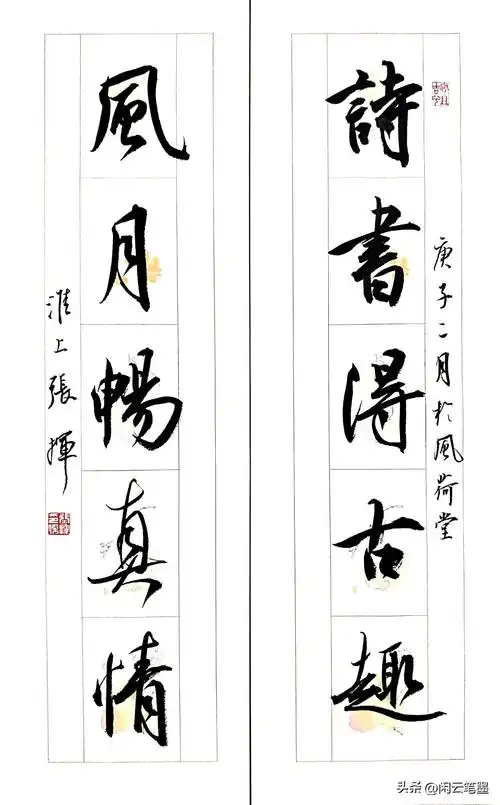 詩書得古趣
庚子二月於風荷堂
風月暢真情
淮上張揮
头条@闲云笔墨